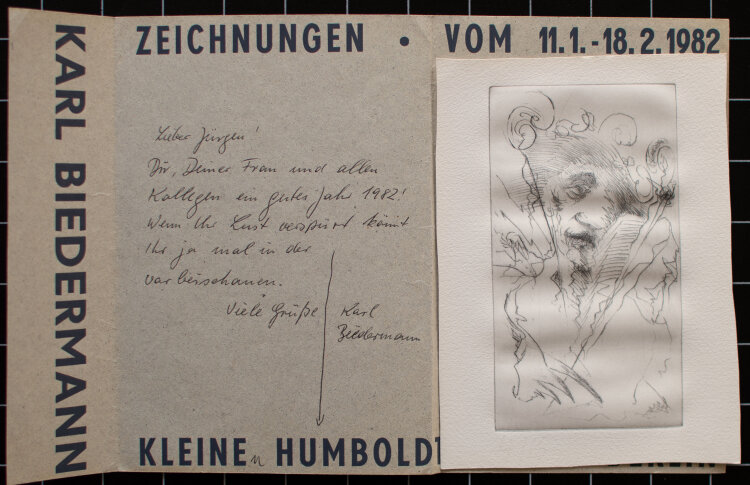 KARL BIEDERMANN
ZEICHNUNGEN • VOM 11.1.-18.2.1982
Lieber Jürgen!
Dir, Deiner Frau und allen
Kollegen ein gutes Jahr 1982!
Wenn Ihr Lust verspürt könnt
Ihr ja mal in der
vorbeischauen.
Viele Grüße
Karl
Biedermann
KLEINEn HUMBOLDT
BERLIN